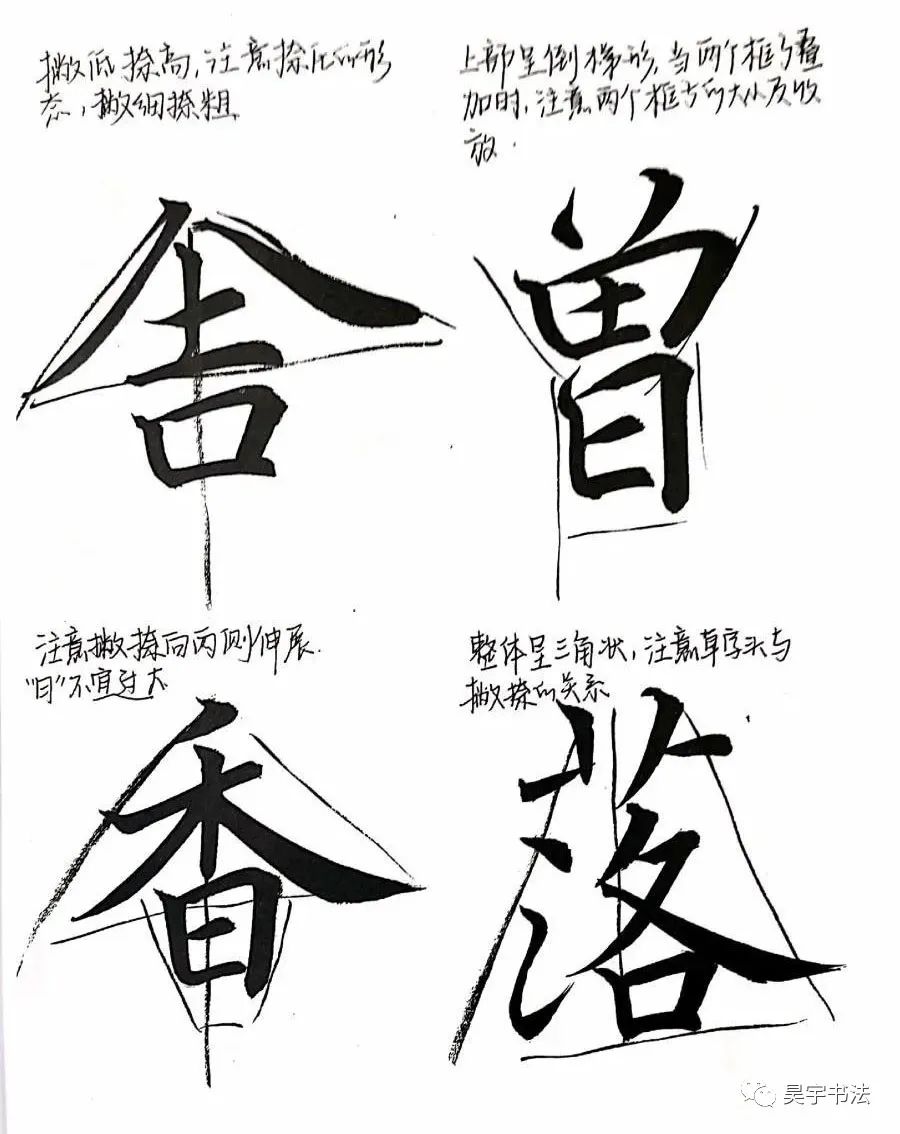 撇低捺高，注意捺画的形
态，撇细捺粗
舍
上部呈倒梯形，当两个框子叠
加时，注意两个框子的大小及收
放．
曾
注意撇捺向两侧伸展．
"日"不宜过大
香
整体呈三角状，注意草字头与
撇捺的关系
落
昊宇书法